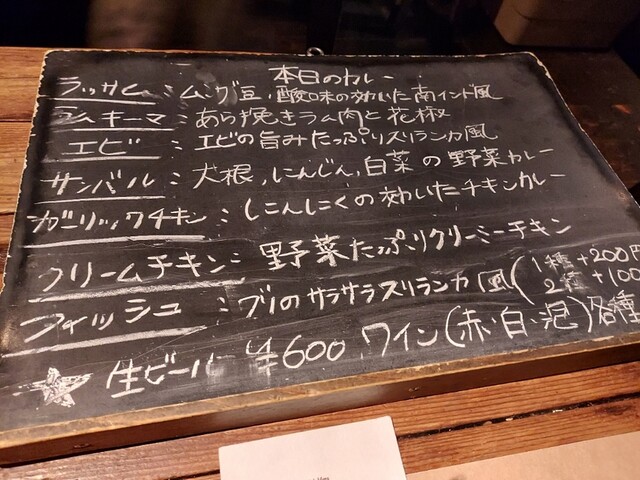 本日のカレー
ラッサム：ムング豆、酸味の効いた南インド風
ラムキーマ：あら挽きラム肉と花椒
エビ：エビの旨みたっぷりスリランカ風
サンバル：大根、にんじん、白菜の野菜カレー
ガーリックチキン：にんにくの効いたチキンカレー
クリームチキン：野菜たっぷりクリーミーチキン
フィッシュ：ブリのサラサラスリランカ風(1種+200円
2種+100
★生ビール ¥600 ワイン(赤、白、泡)各種